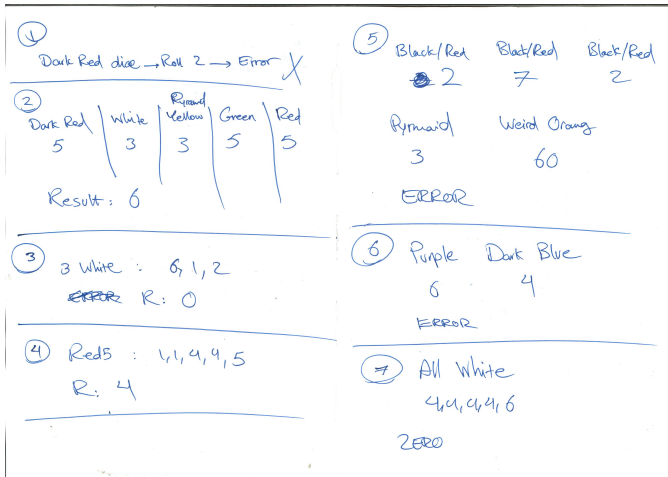 1
Dark Red dice → Roll 2 → Error X
2
Dark Red White Pyramid Yellow Green Red
5 3 3 5 5
Result: 6
3
3 White : 6, 1, 2
ERROR R: 0
4
Red5 : 1, 1, 4, 4, 5
R: 4
5
Black/Red Black/Red Black/Red
2 7 2
Pyrmaid Weird Orang
3 60
ERROR
6
Purple Dark Blue
6 4
ERROR
7
All White
4, 4, 4, 4, 6
ZERO